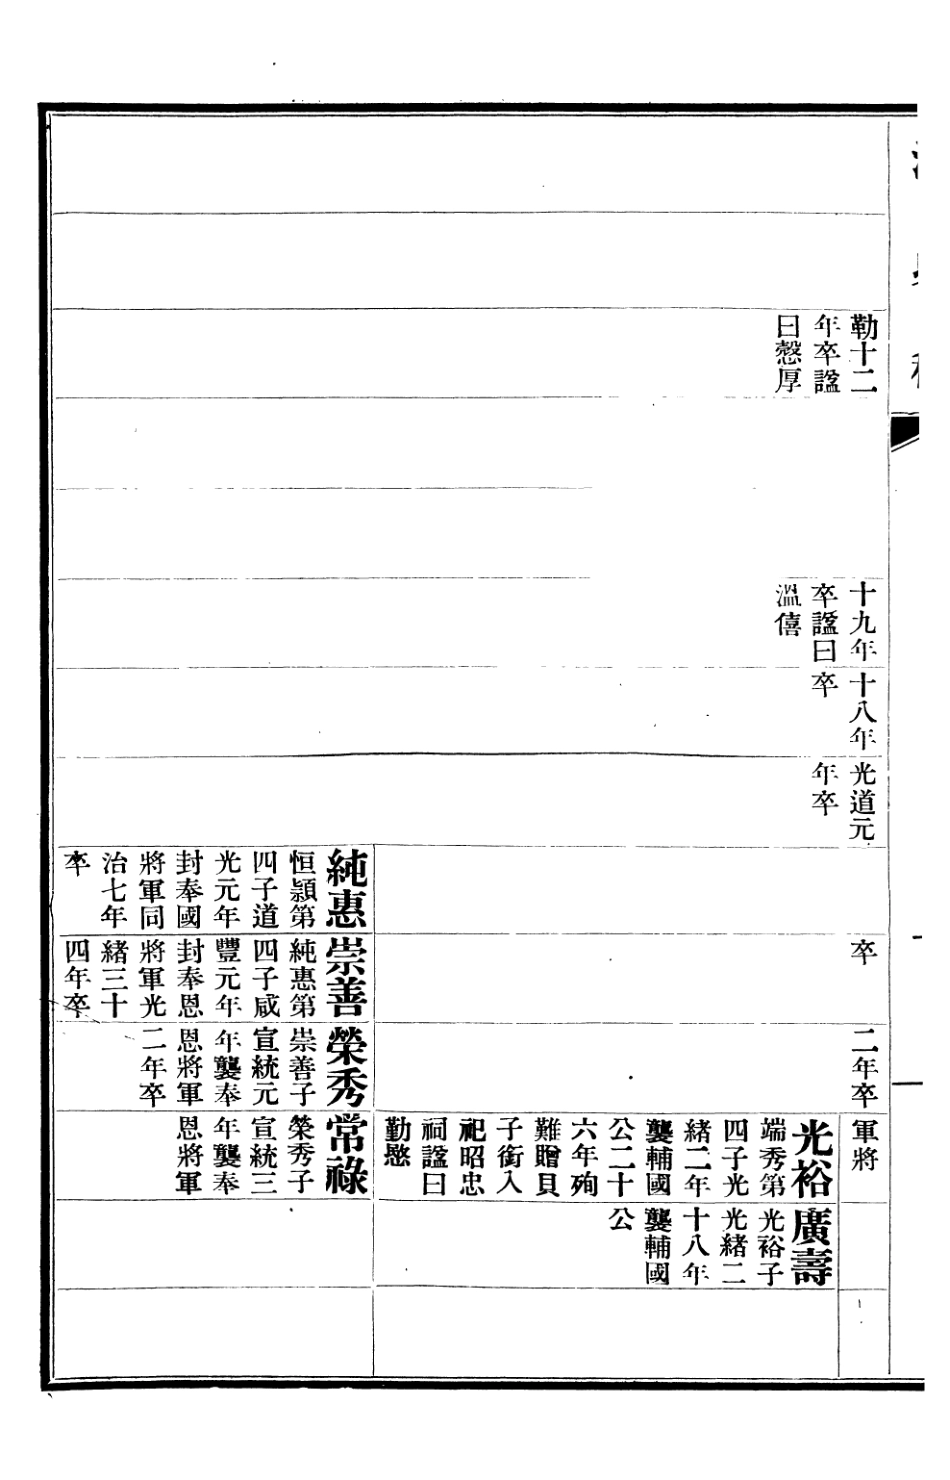 勒十二
年卒諡
曰慤厚
十九年
卒諡曰
溫僖
十八年
卒
光道元
年卒
卒
二年卒
軍將
光裕
端秀第
四子光
緒二年
襲輔國
公二十
六年殉
難贈貝
子銜入
祀昭忠
祠諡曰
勤愍
廣壽
光裕子
光緒二
十八年
襲輔國
公
純惠
恒顯第
四子道
光元年
封奉國
將軍同
治七年
卒
崇善
純惠第
四子咸
豐元年
封奉恩
將軍光
緒三十
四年卒
榮秀
崇善子
宣統元
年襲奉
恩將軍
二年卒
常祿
榮秀子
宣統三
年襲奉
恩將軍